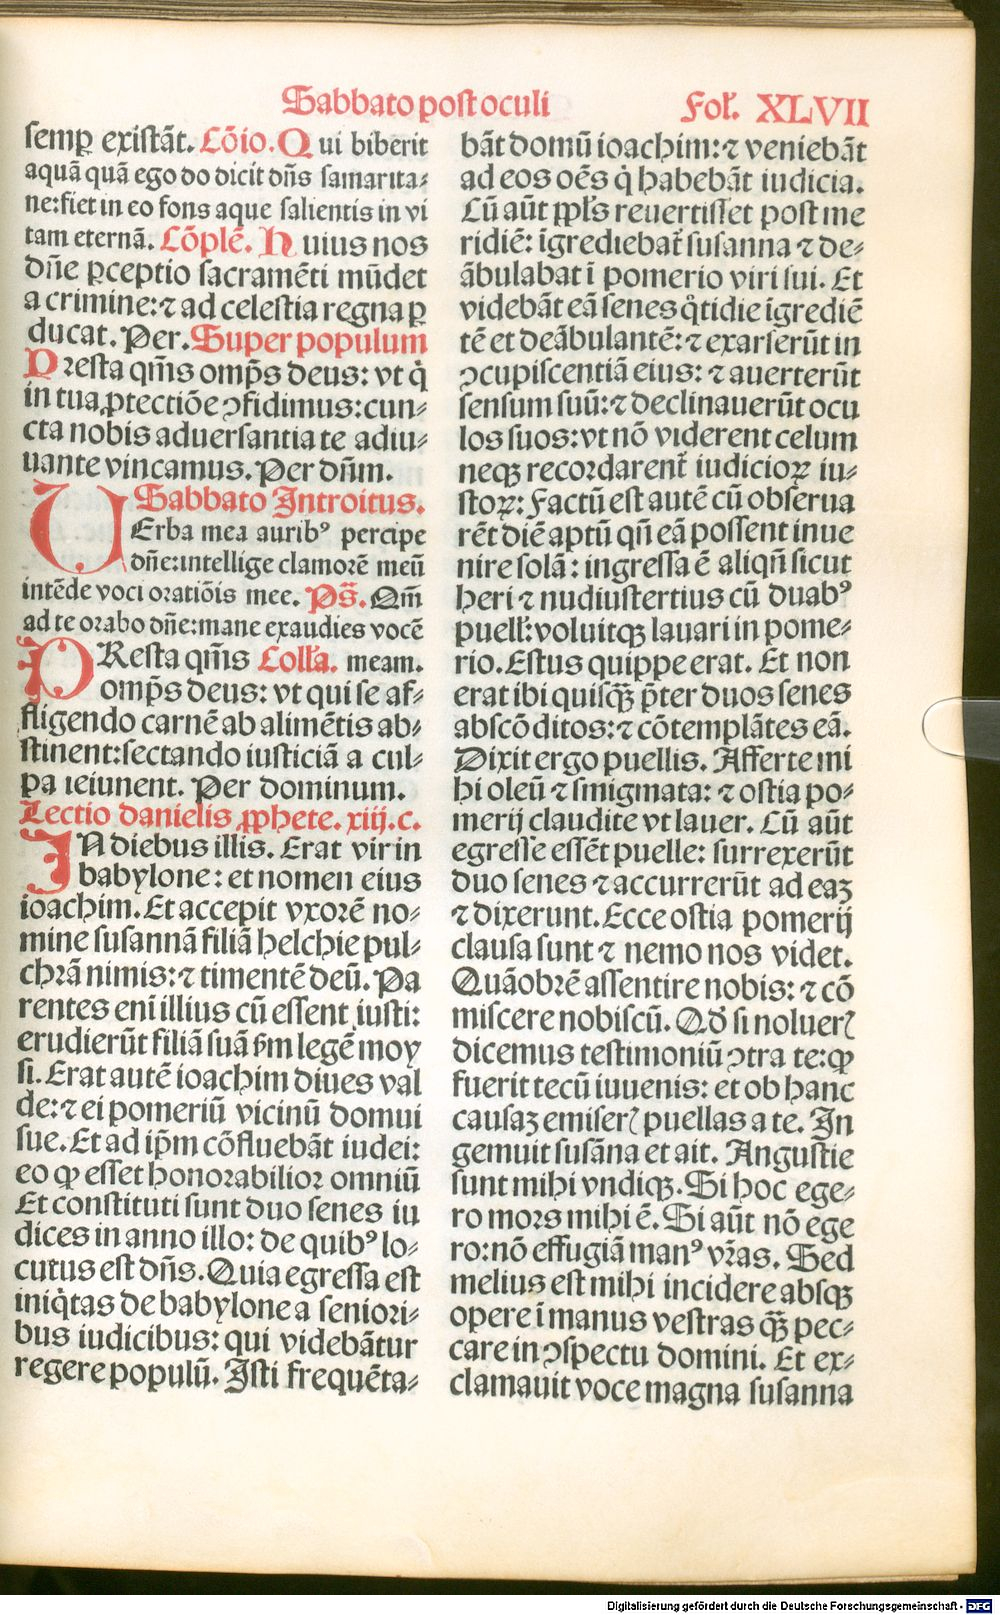 Sabbato post oculi
Fol̃. XLVII
semꝑ existāt. Cōio. Qui biberit
aquā quā ego do dicit dn̄s samarita⸗
ne:fiet in eo fons aque salientis in vi
tam eternā. Cōplē. Huius nos
dn̄e ꝑceptio sacramēti mūdet
a crimine: ⁊ ad celestia regna ꝑ
ducat. Per. Super populum
Presta qm̄s omp̄s deus: vt qͥ
in tua ꝓtectiōe ꝯfidimus: cun⸗
cta nobis aduersantia te adiu⸗
uante vincamus. Per dn̄m.
Sabbato Introitus.
VErba mea auribꝰ percipe
dn̄e:intellige clamorē meū
intēde voci oratiōis mee. Ps̄. Qm̄
ad te orabo dn̄e:mane exaudies vocē
PResta qm̄s Coll̄a. meam.
omp̄s deus: vt qui se af⸗
fligendo carnē ab alimētis ab⸗
stinent:sectando iusticiā a cul⸗
pa ieiunent. Per dominum.
Lectio danielis ꝓphete. xiij.c.
IN diebus illis. Erat vir in
babylone: et nomen eius
ioachim. Et accepit vxorē no⸗
mine susannā filiā helchie pul⸗
chrā nimis: ⁊ timentē deū. Pa
rentes enī illius cū essent iusti:
erudierūt filiā suā ẜm legē moy
si. Erat autē ioachim diues val
de: ⁊ ei pomeriū vicinū domui
sue. Et ad ip̄m cōfluebāt iudei:
eo ꝙ esset honorabilior omniū
Et constituti sunt duo senes iu
dices in anno illo: de quibꝰ lo⸗
cutus est dn̄s. Quia egressa est
iniqͥtas de babylone a seniori⸗
bus iudicibus: qui videbātur
regere populū. Isti frequēta⸗
bāt domū ioachim: ⁊ veniebāt
ad eos oēs qͥ habebāt iudicia.
Cū aūt ppl̄s reuertisset post me
ridiē: īgrediebat̄ susanna ⁊ de⸗
ābulabat ī pomerio viri sui. Et
videbāt eā senes qͦtidie īgrediē
tē et deābulantē: ⁊ exarserūt in
ꝯcupiscentiā eius: ⁊ auerterūt
sensum suū: ⁊ declinauerūt ocu
los suos: vt nō viderent celum
neqꝫ recordarent̄ iudicioꝝ iu⸗
stoꝝ: Factū est autē cū obserua
rēt diē aptū qn̄ eā possent inue
nire solā: ingressa ē aliqn̄ sicut
heri ⁊ nudiustertius cū duabꝰ
puell̄: voluitqꝫ lauari in pome⸗
rio. Estus quippe erat. Et non
erat ibi quisqꝫ̄ p̄ter duos senes
abscōditos: ⁊ cōtemplātes eā.
Dixit ergo puellis. Afferte mi
hi oleū ⁊ smigmata: ⁊ ostia po⸗
merij claudite vt lauer. Cū aūt
egresse essēt puelle: surrexerūt
duo senes ⁊ accurrerūt ad eaꝫ
⁊ dixerunt. Ecce ostia pomerij
clausa sunt ⁊ nemo nos videt.
Quāobrē assentire nobis: ⁊ cō
miscere nobiscū. Qď si noluer̄
dicemus testimoniū ꝯtra te: ꝙ
fuerit tecū iuuenis: et ob hanc
causaꝫ emiser̄ puellas a te. In
gemuit susāna et ait. Angustie
sunt mihi vndiqꝫ. Si hoc ege⸗
ro mors mihi ē. Si aūt nō ege
ro: nō effugiā manꝰ vr̄as. Sed
melius est mihi incidere absqꝫ
opere ī manus vestras qꝫ̄ pec⸗
care in ꝯspectu domini. Et ex⸗
clamauit voce magna susanna
Digitalisierung gefördert durch die Deutsche Forschungsgemeinschaft - DFG